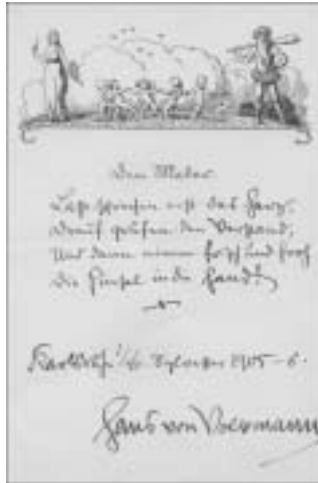 Dem Maler.
Laß sprechen erst das Herz,
Drauf prüfen den Verstand;
Und dann nimm frisch und froh
Die Pinsel in die Hand!
Karlsruhe Sylvester 1905-6.
Hans von Volkmann